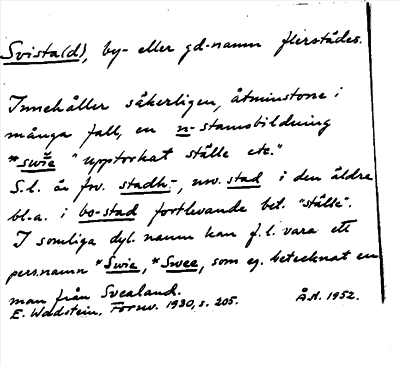 Svista(d), by- eller gd-namn flerstädes.
Innehåller säkerligen, åtminstone i
många fall, en n-stamsbildning
*swīe "upptorkat ställe etc."
S.l. är fsv. stadh-, nsv. stad i den äldre
bl.a. i bo-stad fortlevande bet. "ställe".
I somliga dyl. namn kan f.l. vara ett
pers.namn *Swie, *Swee, som eg. betecknat en
man från Svealand.
E. Wadstein, Fornv. 1930, s. 205.
Å.st. 1952.